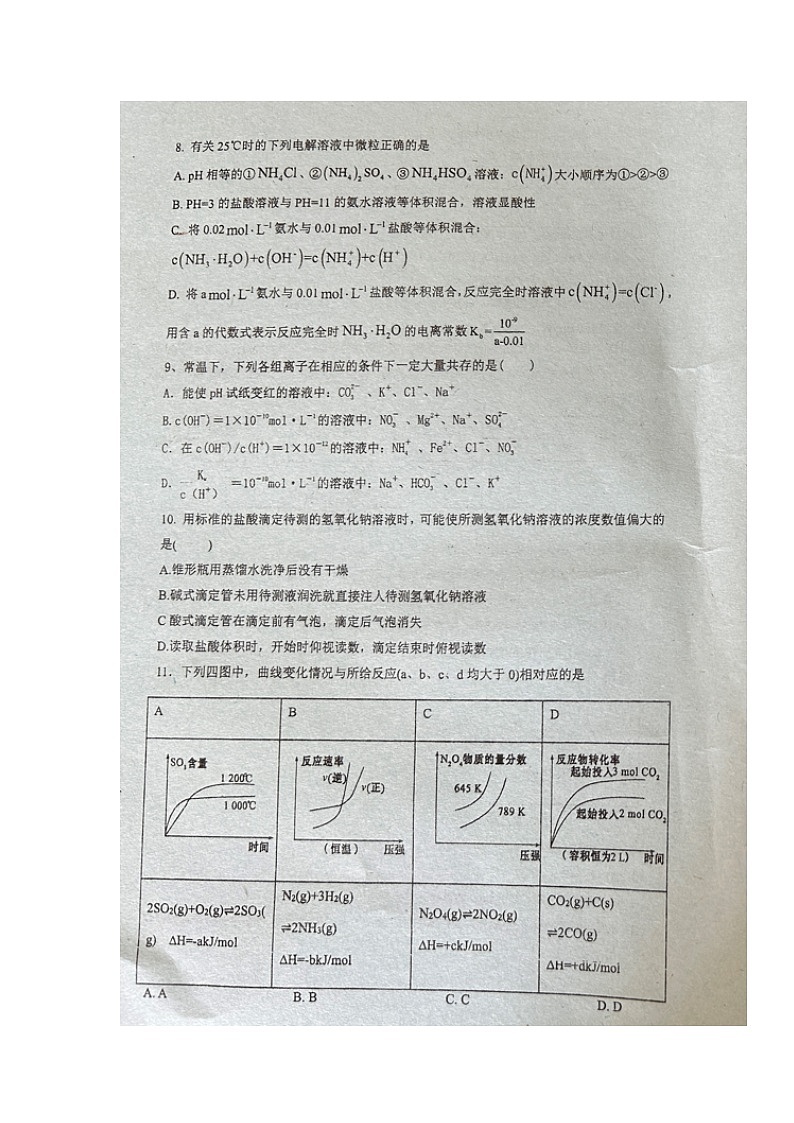 8. 有关25℃时的下列电解溶液中微粒正确的是
A. pH 相等的①NH₄Cl、②(NH₄)₂SO₄、③NH₄HSO₄溶液：c(NH₄⁺)大小顺序为①>②>③
B. PH=3 的盐酸溶液与 PH=11 的氨水溶液等体积混合，溶液显酸性
C. 将 0.02mol·L⁻¹氨水与 0.01mol·L⁻¹盐酸等体积混合：
c(NH₃·H₂O)+c(OH⁻)=c(NH₄⁺)+c(H⁺)
D. 将 a mol·L⁻¹氨水与 0.01mol·L⁻¹盐酸等体积混合，反应完全时溶液中c(NH₄⁺)=c(Cl⁻)，
用含 a 的代数式表示反应完全时 NH₃·H₂O 的电离常数K_b=10⁻⁹/(a-0.01)
9、常温下，下列各组离子在相应的条件下一定大量共存的是(　　)
A. 能使 pH 试纸变红的溶液中：CO₃²⁻、K⁺、Cl⁻、Na⁺
B.c(OH⁻)=1×10⁻¹⁰mol·L⁻¹的溶液中：NO₃⁻、Mg²⁺、Na⁺、SO₄²⁻
C. 在 c(OH⁻)/c(H⁺)=1×10⁻¹²的溶液中：NH₄⁺、Fe²⁺、Cl⁻、NO₃⁻
D. K_w/c(H⁺)=10⁻¹⁰mol·L⁻¹的溶液中：Na⁺、HCO₃⁻、Cl⁻、K⁺
10. 用标准的盐酸滴定待测的氢氧化钠溶液时，可能使所测氢氧化钠溶液的浓度数值偏大的
是(　　)
A.锥形瓶用蒸馏水洗净后没有干燥
B.碱式滴定管未用待测液润洗就直接注人待测氢氧化钠溶液
C 酸式滴定管在滴定前有气泡，滴定后气泡消失
D.读取盐酸体积时，开始时仰视读数，滴定结束时俯视读数
11. 下列四图中，曲线变化情况与所给反应(a、b、c、d 均大于 0)相对应的是
A B C D
SO₃含量
1 200℃
1 000℃
时间
反应速率
v(逆)
v(正)
(恒温) 压强
N₂O₄物质的量分数
645 K
789 K
压强
反应物转化率
起始投入3 mol CO₂
起始投入2 mol CO₂
(容积恒为2 L) 时间
2SO₂(g)+O₂(g)⇌2SO₃(
g) ΔH=-akJ/mol
N₂(g)+3H₂(g)
⇌2NH₃(g)
ΔH=-bkJ/mol
N₂O₄(g)⇌2NO₂(g)
ΔH=+ckJ/mol
CO₂(g)+C(s)
⇌2CO(g)
ΔH=+dkJ/mol
A. A B. B C. C D. D